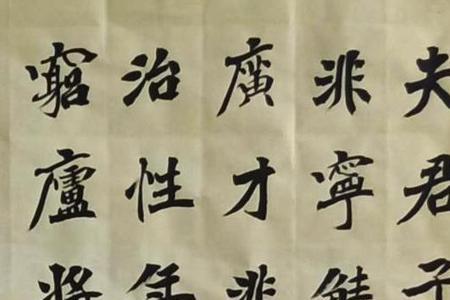 夫君子
非寧靜
廣才非
治性年
窮廬將